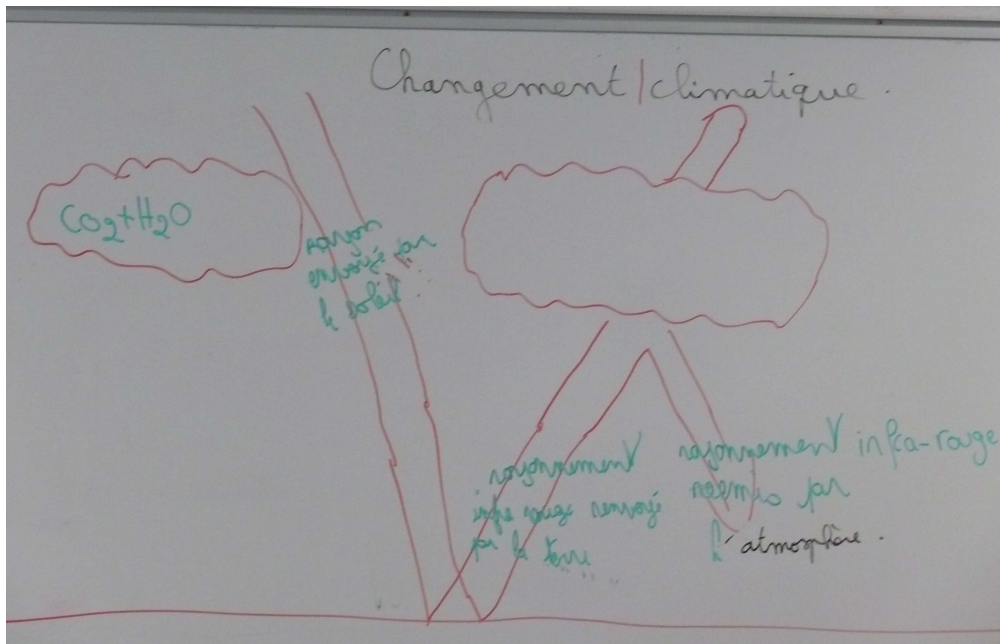 Changement/climatique.
CO2+H2O
rayon
envoyé par
le soleil
rayonnement
infra rouge renvoyé
par la terre
rayonnement infra-rouge
réemis par
l'atmosphère.